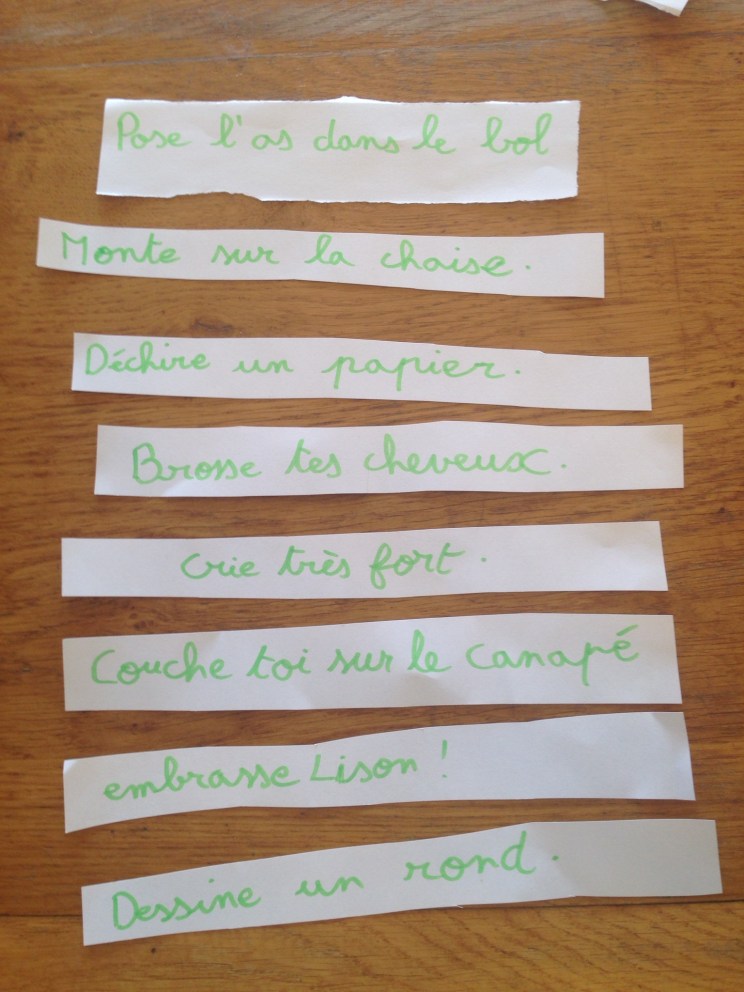 Pose l'as dans le bol
Monte sur la chaise.
Déchire un papier.
Brosse tes cheveux.
Crie très fort.
Couche toi sur le canapé
embrasse Lison !
Dessine un rond.